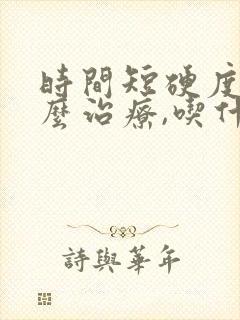 時間短硬度
麼治療,喫什
詩與華年